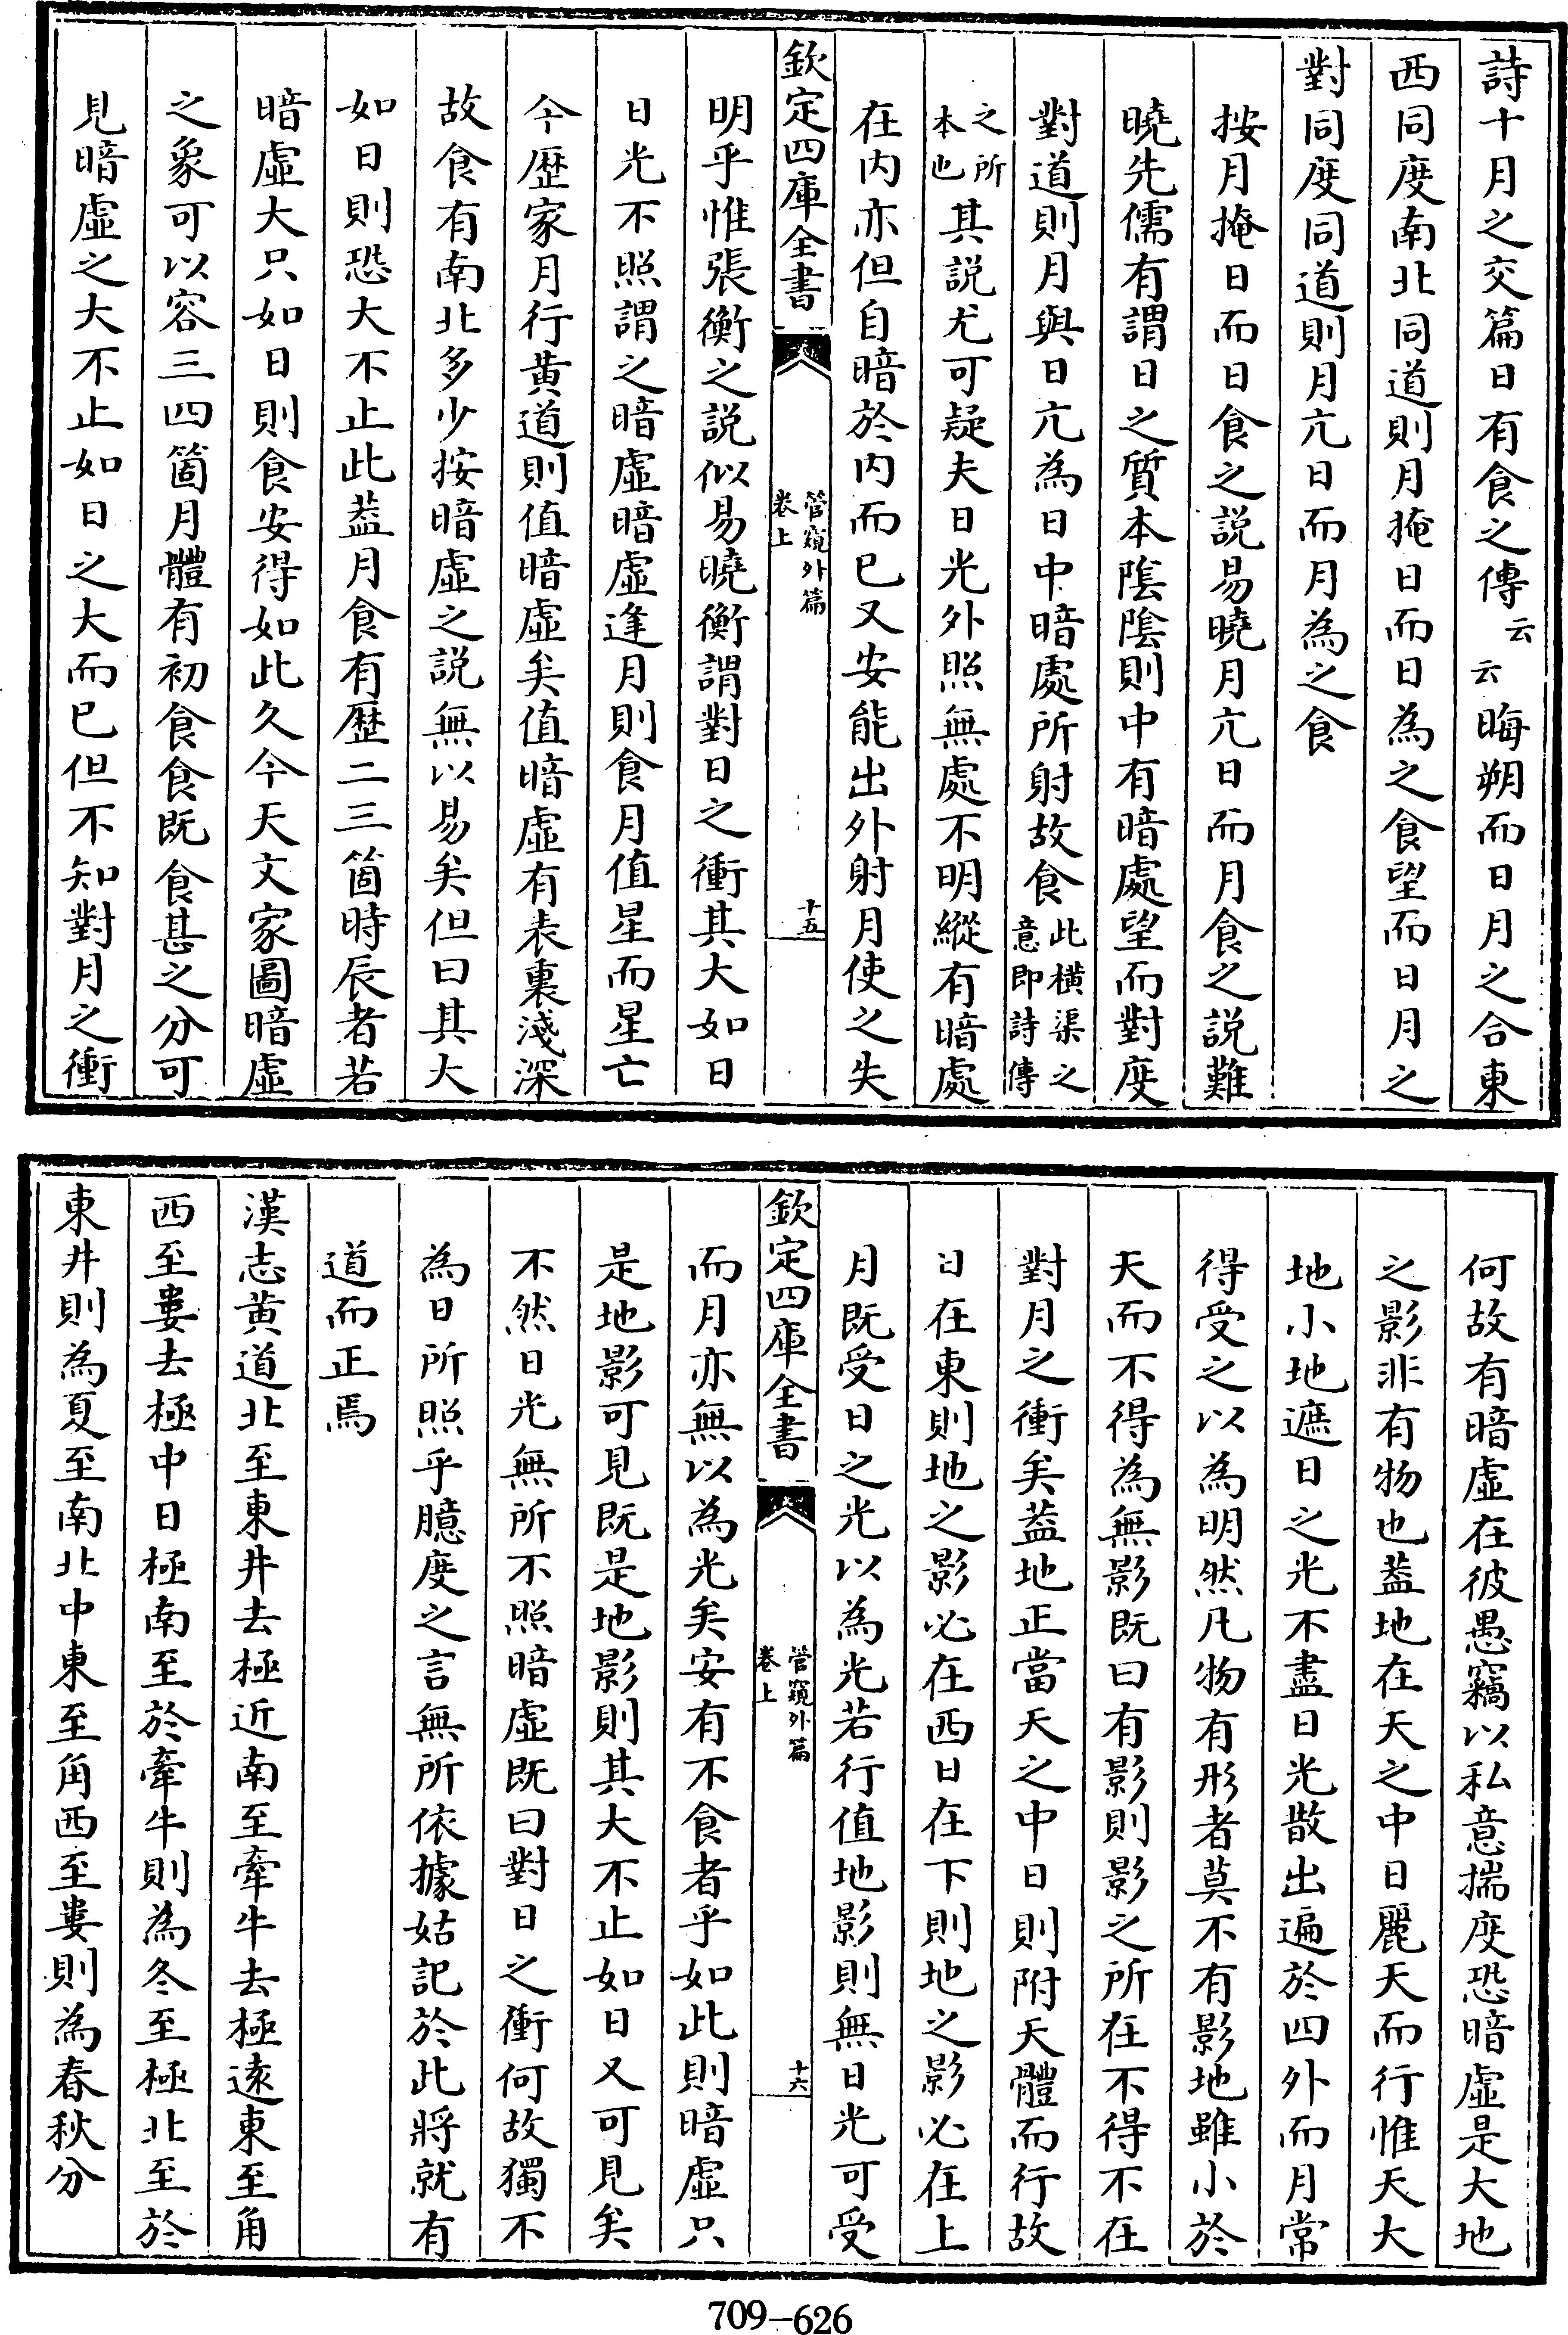 詩十月之交篇日有食之傳云云晦朔而日月之合東
西同度南北同道則月掩日而日為之食望而日月之
對同度同道則月亢日而月為之食
按月掩日而日食之説易曉月亢日而月食之説難
曉先儒有謂日之質本隂隂則中有暗處望而對度
對道則月與日亢為日中暗處所射故食此横渠之意即詩傳
之所本也其説尤可疑夫日光外照無處不明縱有暗處
在内亦但自暗於内而已又安能出外射月使之失
欽定四庫全書
管窺外篇
卷上
十五
明乎惟張衡之説似易曉衡謂對日之衝其大如日
日光不照謂之暗虛暗虛逢月則食月值星而星亡
今歴家月行黄道則值暗虛矣值暗虛有表裏淺深
故食有南北多少按暗虛之説無以易矣但曰其大
如日則恐大不止此葢月食有歴二三箇時辰者若
暗虛大只如日則食安得如此久今天文家圖暗虛
之象可以容三四箇月體有初食食既食甚之分可
見暗虛之大不止如日之大而已但不知對月之衝
何故有暗虛在彼愚竊以私意揣度恐暗虛是大地
之影非有物也葢地在天之中日麗天而行惟天大
地小地遮日之光不盡日光散出遍於四外而月常
得受之以為明然凡物有形者莫不有影地雖小於
天而不得為無影既曰有影則影之所在不得不在
對月之衝矣葢地正當天之中日則附天體而行故
日在東則地之影必在西日在下則地之影必在上
月既受日之光以為光若行值地影則無日光可受
欽定四庫全書
管窺外篇
卷上
十六
而月亦無以為光矣安有不食者乎如此則暗虛只
是地影可見既是地影則其大不止如日又可見矣
不然日光無所不照暗虛既曰對日之衝何故獨不
為日所照乎臆度之言無所依據姑記於此將就有
道而正焉
漢志黄道北至東井去極近南至牽牛去極遠東至角
西至婁去極中日極南至於牽牛則為冬至極北至於
東井則為夏至南北中東至角西至婁則為春秋分
709-626